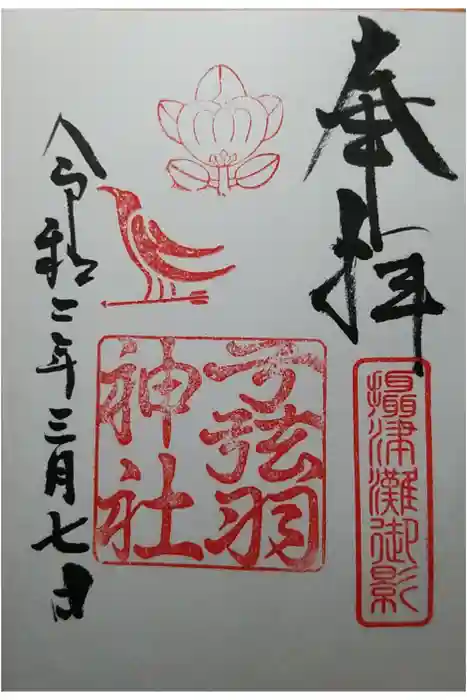 奉拝
攝津灘御影
弓弦羽
神社
令和二年三月七日